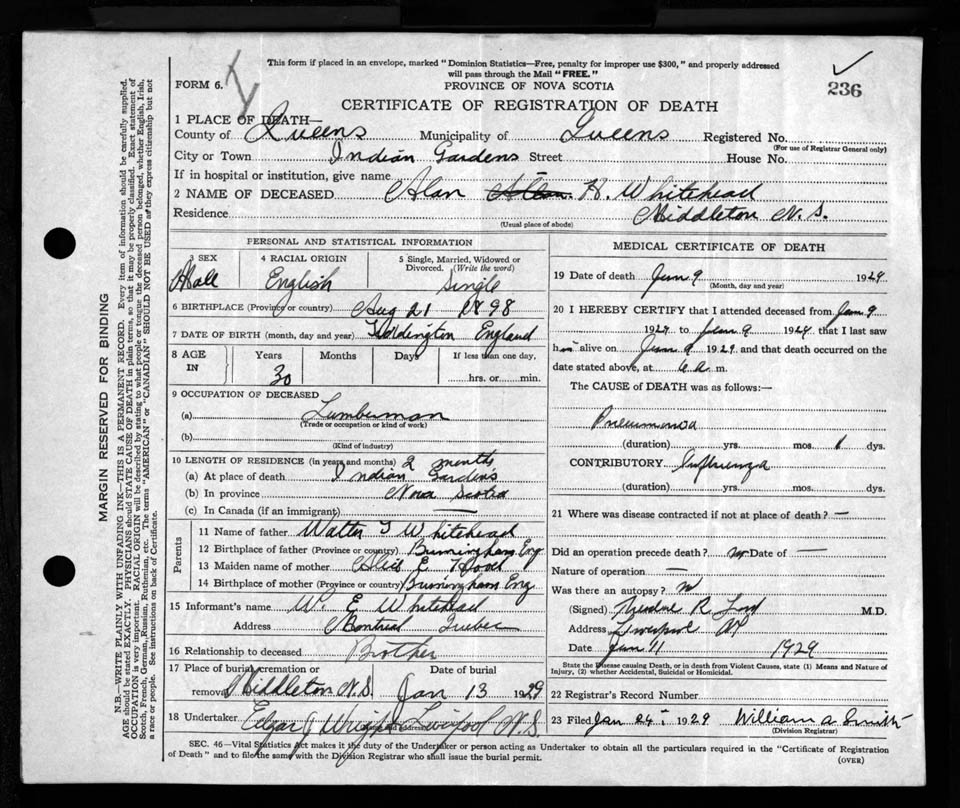 This form if placed in an envelope, marked "Dominion Statistics—Free, penalty for improper use $300," and properly addressed
will pass through the Mail "FREE."
FORM 6.
PROVINCE OF NOVA SCOTIA
236
CERTIFICATE OF REGISTRATION OF DEATH
1 PLACE OF DEATH—
County of Queens Municipality of Queens Registered No.
(For use of Registrar General only)
City or Town Indian Gardens Street House No.
If in hospital or institution, give name
2 NAME OF DECEASED Alan H. Whitehead
Residence Middleton N.S.
(Usual place of abode)
PERSONAL AND STATISTICAL INFORMATION
3 SEX 4 RACIAL ORIGIN 5 Single, Married, Widowed or Divorced. (Write the word)
Mall English Single
6 BIRTHPLACE (Province or country) Aug 21 1898
7 DATE OF BIRTH (month, day and year) England
8 AGE IN Years Months Days If less than one day,
30 hrs. or min.
9 OCCUPATION OF DECEASED
(a) Lumberman
(Trade or occupation or kind of work)
(b)
(Kind of industry)
10 LENGTH OF RESIDENCE (in years and months) 2 months
(a) At place of death Indian Gardens
(b) In province Nova Scotia
(c) In Canada (if an immigrant) —
Parents
11 Name of father Walter Whitehead
12 Birthplace of father (Province or country) Burmingham Eng
13 Maiden name of mother E Hood
14 Birthplace of mother (Province or country) Burmingham Eng
15 Informant's name W. E Whitehead
Address Montreal Quebec
16 Relationship to deceased Brother
17 Place of burial, cremation or removal Date of burial
Middleton N.S. Jan 13 1929
18 Undertaker Edgar J Wright Liverpool N.S.
MEDICAL CERTIFICATE OF DEATH
19 Date of death Jan 9 1929
(Month, day and year)
20 I HEREBY CERTIFY that I attended deceased from Jan 9
1929 to Jan 9 1929 that I last saw
him alive on Jan 9 1929 and that death occurred on the
date stated above, at a. m.
The CAUSE OF DEATH was as follows:—
Pneumonia
(duration) yrs. mos. 1 dys.
CONTRIBUTORY Influenza
(duration) yrs. mos. dys.
21 Where was disease contracted if not at place of death? —
Did an operation precede death? no Date of —
Nature of operation —
Was there an autopsy? no
(Signed) R. Ford M.D.
Address Liverpool NS
Date Jan 11 1929
State the Disease causing Death, or in death from Violent Causes, state (1) Means and Nature of Injury, (2) whether Accidental, Suicidal or Homicidal.
22 Registrar's Record Number
23 Filed Jan 24 1929 William A Smith
(Division Registrar)
SEC. 46—Vital Statistics Act makes it the duty of the Undertaker or person acting as Undertaker to obtain all the particulars required in the "Certificate of Registration
of Death" and to file the same with the Division Registrar who shall issue the burial permit.
(OVER)
MARGIN RESERVED FOR BINDING
N.B.—WRITE PLAINLY WITH UNFADING INK—THIS IS A PERMANENT RECORD. Every item of information should be carefully supplied.
AGE should be stated EXACTLY. PHYSICIANS should STATE CAUSE OF DEATH in plain terms, so that it may be properly classified. Exact statement of
OCCUPATION is very important. RACIAL ORIGIN will be described by stating to what people or tongue the deceased person belonged, whether English, Irish,
Scotch, French, German, Russian, Ruthenian, etc. The terms "AMERICAN" or "CANADIAN" SHOULD NOT BE USED as they express citizenship but not
a race or people. See instructions on back of Certificate.